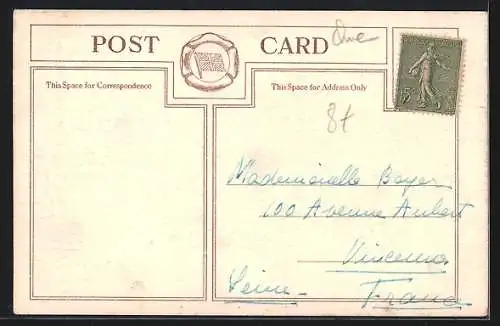 POST CARD
One
This Space for Correspondence
This Space for Address Only
8f
Mademoiselle Boyer
100 Avenue Aubert
Vincennes
Seine
France